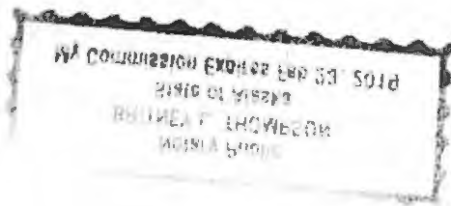 Notary Public
BRITNEY THOMPSON
State of Alaska
My Commission Expires Feb 23, 2019